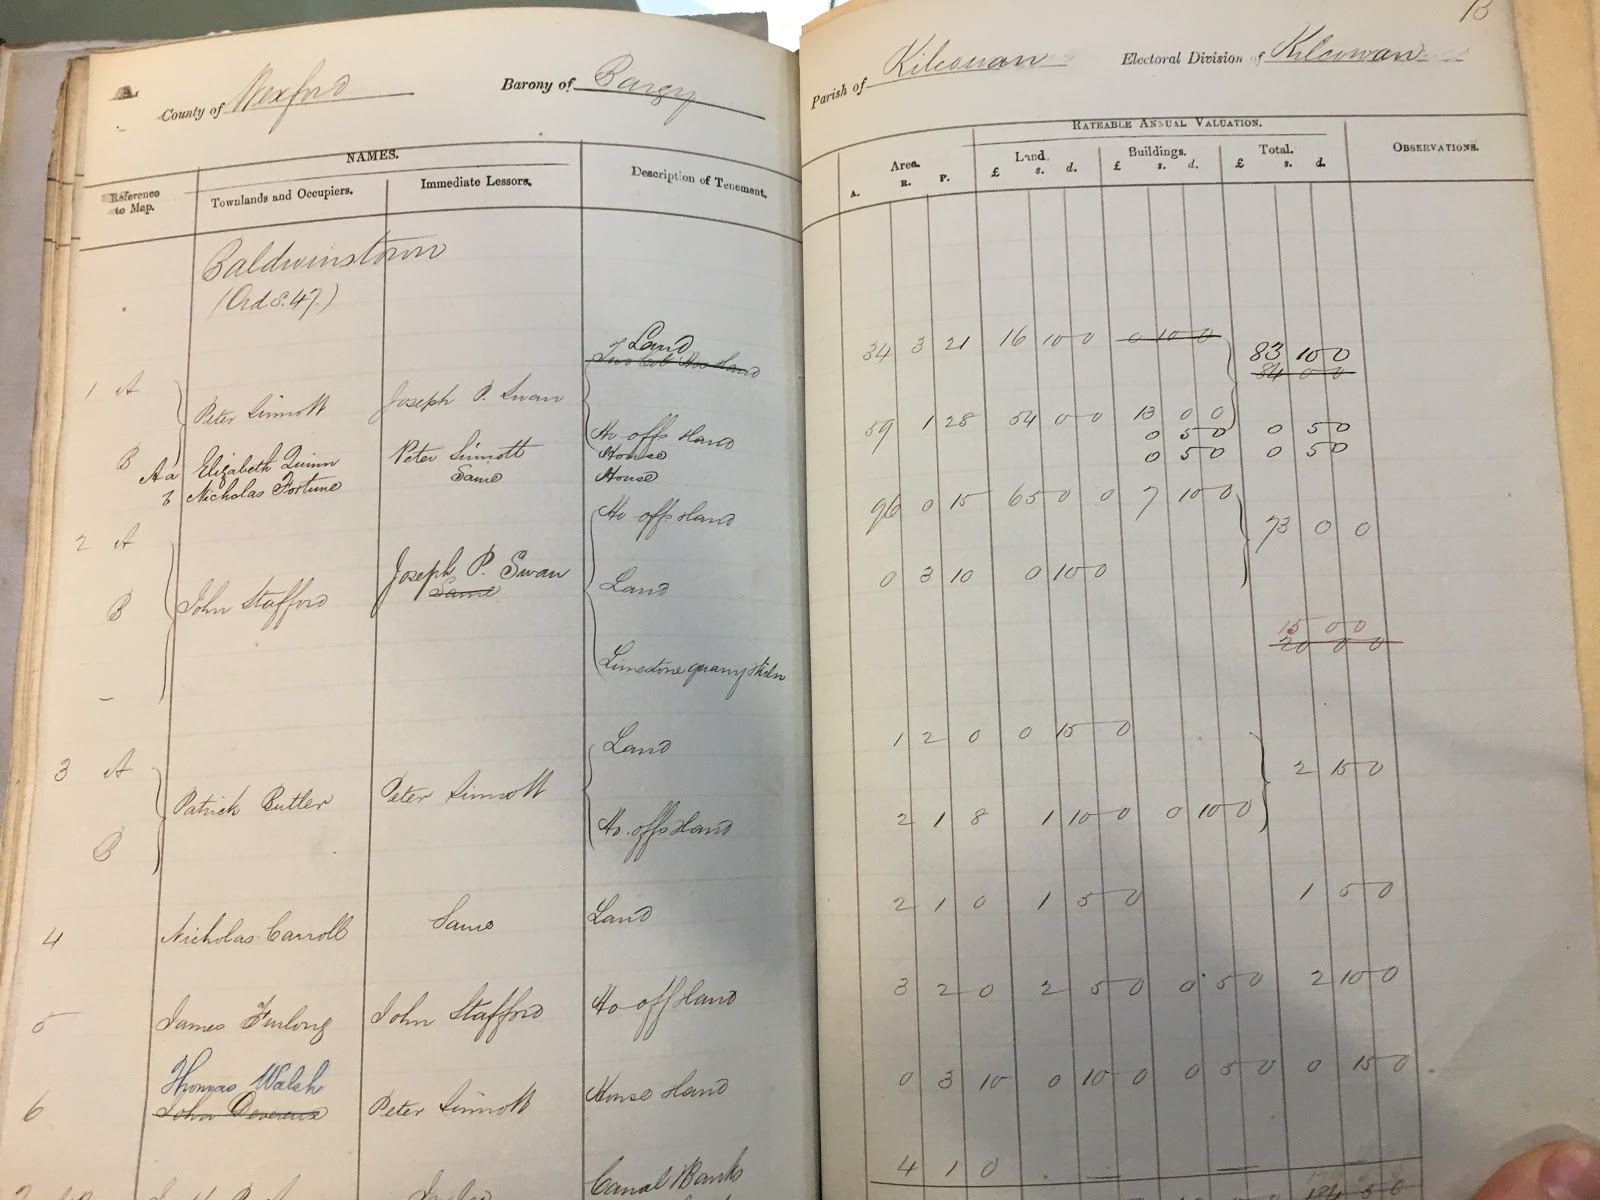 13
A.
County of Wexford Barony of Bargy Parish of Kilcowan Electoral Division of Kilcowan
NAMES. RATEABLE ANNUAL VALUATION.
Reference to Map. Townlands and Occupiers. Immediate Lessors. Description of Tenement. Area. Land. Buildings. Total. OBSERVATIONS.
A. R. P. £ s. d. £ s. d. £ s. d.
Baldwinstown
(Ord S. 47.)
Land
34 3 21 16 10 0 0 10 0 83 10 0
84 0 0
1 A Peter Sinnott Joseph P. Swan
B Ho offs & land 59 1 28 54 0 0 13 0 0
Aa Elizabeth Quinn Peter Sinnott House 0 5 0 0 5 0
b Nicholas Fortune Same House 0 5 0 0 5 0
2 A Ho offs & land 96 0 15 65 0 0 7 10 0 73 0 0
John Stafford Joseph P. Swan
Same
B Land 0 3 10 0 10 0
- Limestone quarry & kiln 15 0 0
20 0 0
3 A Land 1 2 0 0 15 0
Patrick Butler Peter Sinnott 2 15 0
B Ho. offs & land 2 1 8 1 10 0 0 10 0
4 Nicholas Carroll Same Land 2 1 0 1 5 0 1 5 0
5 James Furlong John Stafford Ho off & land 3 2 0 2 5 0 0 5 0 2 10 0
Thomas Walsh
6 John Devereux Peter Sinnott House & land 0 3 10 0 10 0 0 5 0 0 15 0
Canal & Banks 4 1 0
184 5 0